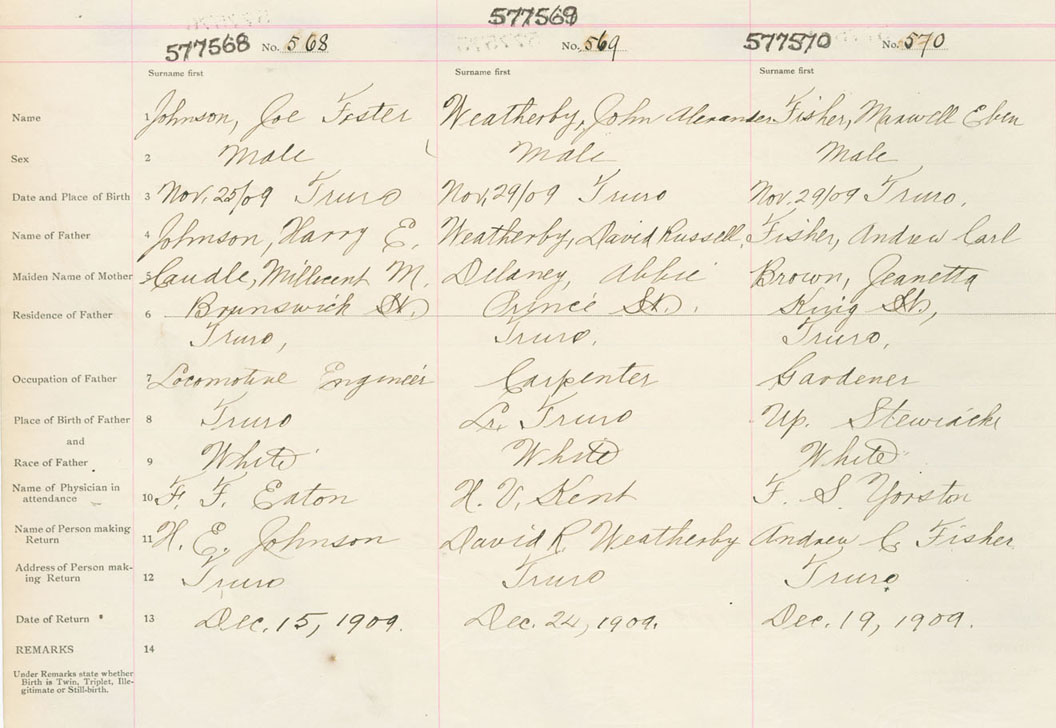 577569
577568 No. 568 No. 569 577570 No. 570
Surname first Surname first Surname first
Name 1 Johnson, Joe Foster Weatherby, John Alexander Fisher, Maxwell Eben
Sex 2 Male Male Male
Date and Place of Birth 3 Nov. 25/09 Truro Nov. 29/09 Truro Nov. 29/09 Truro.
Name of Father 4 Johnson, Harry E. Weatherby, David Russell, Fisher, Andrew Carl
Maiden Name of Mother 5 Caudle, Millicent M. Delaney, Abbie Brown, Jeanetta
Residence of Father 6 Brunswick St. Prince St. King St.,
Truro, Truro. Truro.
Occupation of Father 7 Locomotive Engineer Carpenter Gardener
Place of Birth of Father 8 Truro Lr. Truro Up. Stewiacke
and
Race of Father 9 White White White
Name of Physician in attendance 10 F. F. Eaton H. V. Kent F. S. Yorston
Name of Person making Return 11 H. E. Johnson David R. Weatherby Andrew C. Fisher
Address of Person mak-
ing Return 12 Truro Truro Truro
Date of Return 13 Dec. 15, 1909. Dec. 24, 1909. Dec. 19, 1909.
REMARKS 14
Under Remarks state whether
Birth is Twin, Triplet, Ille-
gitimate or Still-birth.